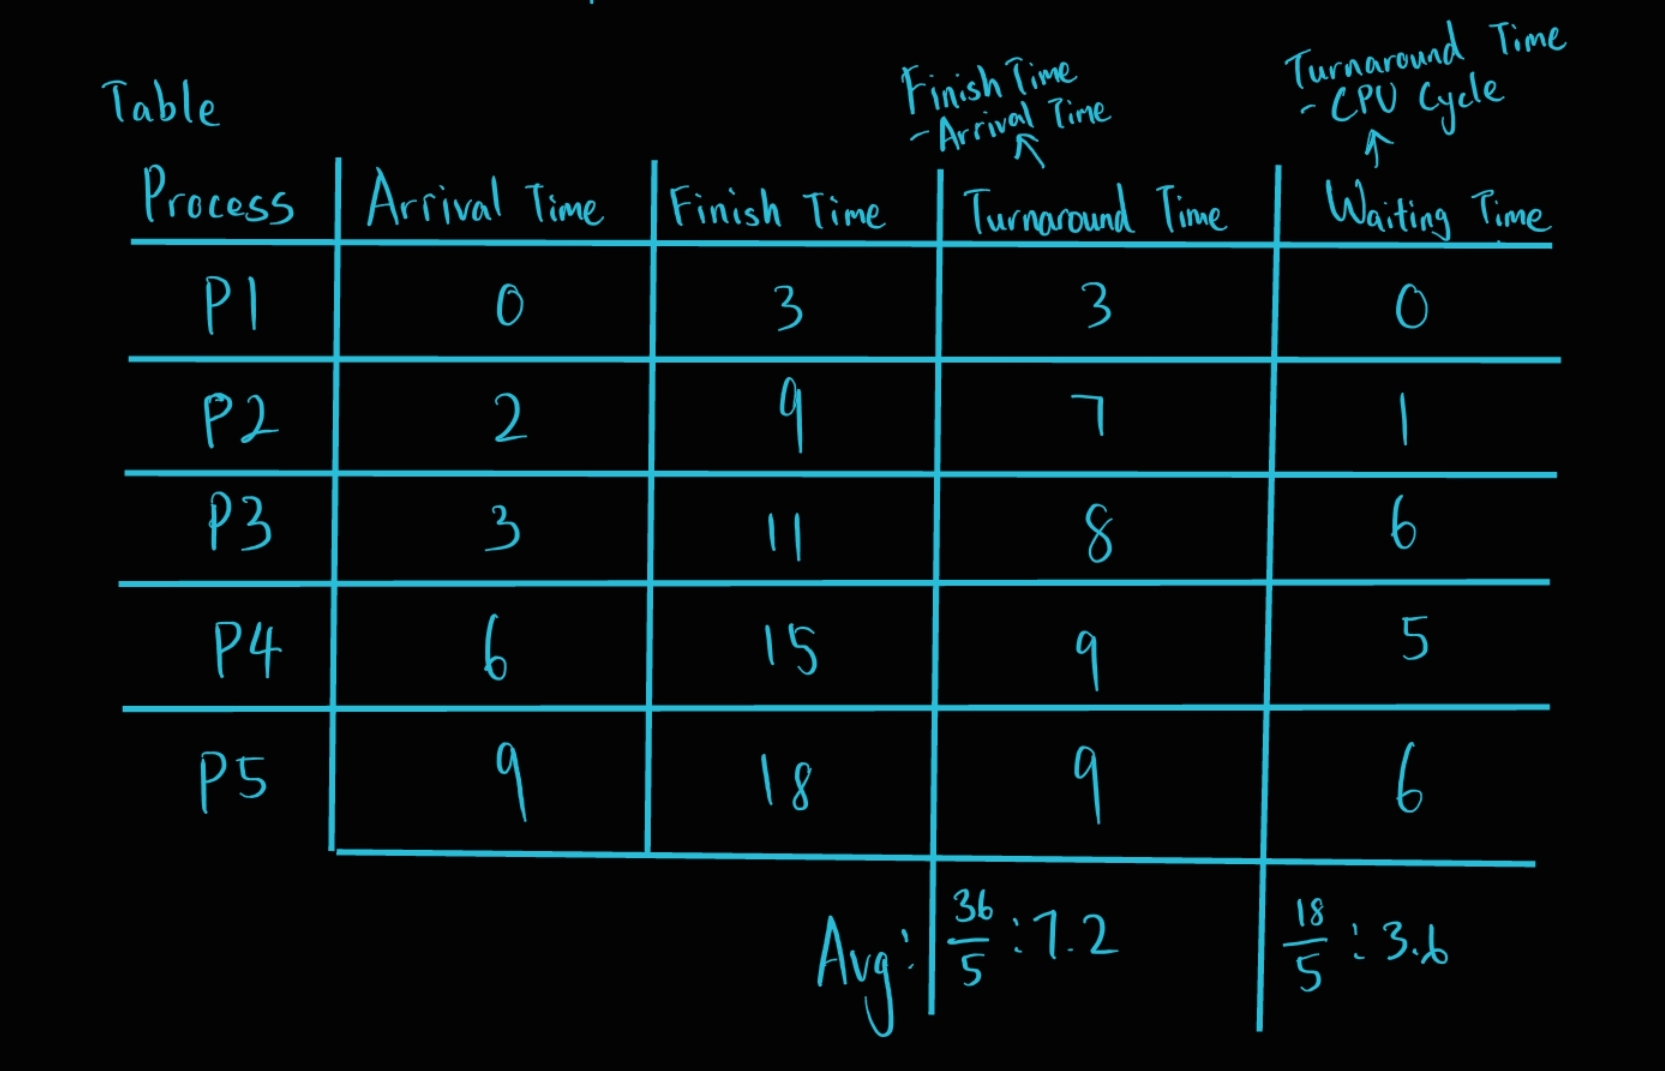 Table
Finish Time
- Arrival Time
Turnaround Time
- CPU Cycle
Process Arrival Time Finish Time Turnaround Time Waiting Time
P1 0 3 3 0
P2 2 9 7 1
P3 3 11 8 6
P4 6 15 9 5
P5 9 18 9 6
Avg: 36/5 : 7.2 18/5 : 3.6